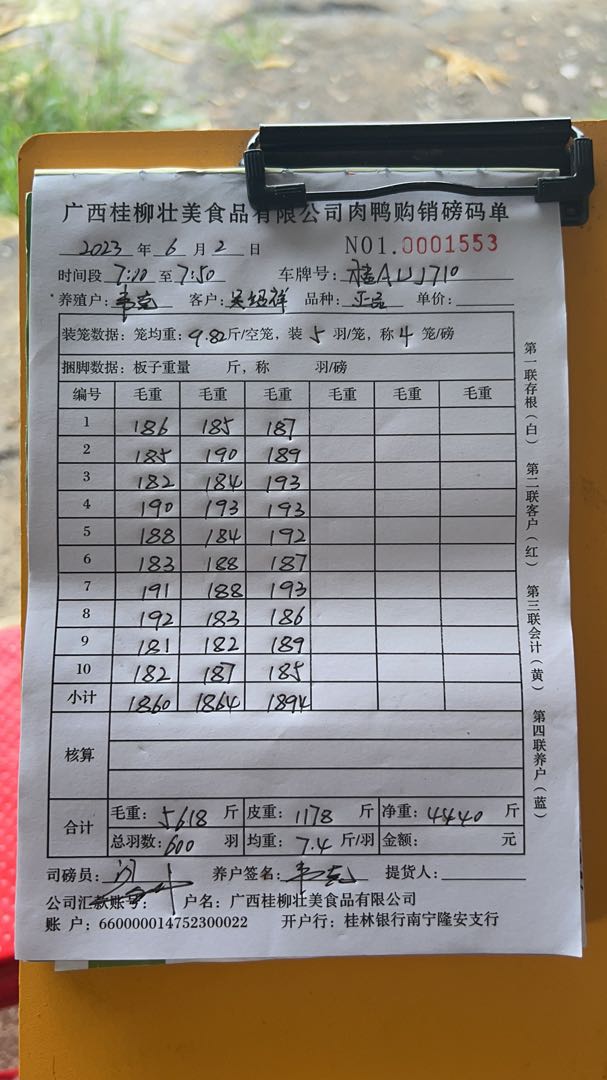 广西桂柳壮美食品有限公司肉鸭购销磅码单
2023 年 6 月 2 日 NO1.0001553
时间段 7:10 至 7:50 车牌号:
养殖户: 客户: 品种: 正品 单价:
装笼数据: 笼均重: 9.82 斤/空笼, 装 5 羽/笼, 称 4 笼/磅
捆脚数据: 板子重量 斤, 称 羽/磅
编号 毛重 毛重 毛重 毛重 毛重 毛重
1 186 185 187
2 185 190 189
3 182 184 193
4 190 193 193
5 188 184 192
6 183 188 187
7 191 188 193
8 192 183 186
9 181 182 189
10 182 187 185
小计 1860 1864 1894
核算
合计 毛重: 5618 斤 皮重: 1178 斤 净重: 4440 斤
总羽数: 600 羽 均重: 7.4 斤/羽 金额: 元
司磅员: 养户签名: 提货人:
公司汇款账号: 户名: 广西桂柳壮美食品有限公司
账 户: 660000014752300022 开户行: 桂林银行南宁隆安支行
第一联存根(白) 第二联客户(红) 第三联会计(黄) 第四联养户(蓝)